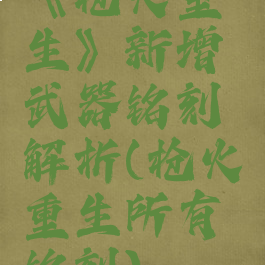 《枪火重
生》新增
武器铭刻
解析(枪火
重生所有
铭刻)